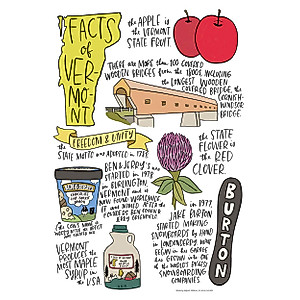 FACTS
of
VER-
MONT
the APPLE is
the VERMONT
STATE FRUIT.
THERE ARE MORE THAN 100 COVERED
WOODEN BRIDGES FROM the 1800s, INCLUDING
the LONGEST WOODEN
COVERED BRIDGE, the
CORNISH-
WINDSOR
BRIDGE.
FREEDOM & UNITY
the
STATE MOTTO WAS ADOPTED in 1788.
the STATE
FLOWER is
the RED
CLOVER.
BEN & JERRY'S
BEN & JERRY'S
WAS STARTED
in 1978
in BURLINGTON,
VERMONT and is
NOW FOUND WORLDWIDE.
IT WAS NAMED AFTER its
FOUNDERS BEN COHEN &
JERRY GREENFIELD.
VERMONT
PRODUCES the
MOST MAPLE
SYRUP in the
USA.
in 1977,
JAKE BURTON
STARTED MAKING
SNOWBOARDS by HAND
in LONDONDERRY. WHAT
BEGAN in HIS GARAGE
HAS GROWN into ONE
of the WORLD'S LARGEST
SNOWBOARDING
COMPANIES.
BURTON